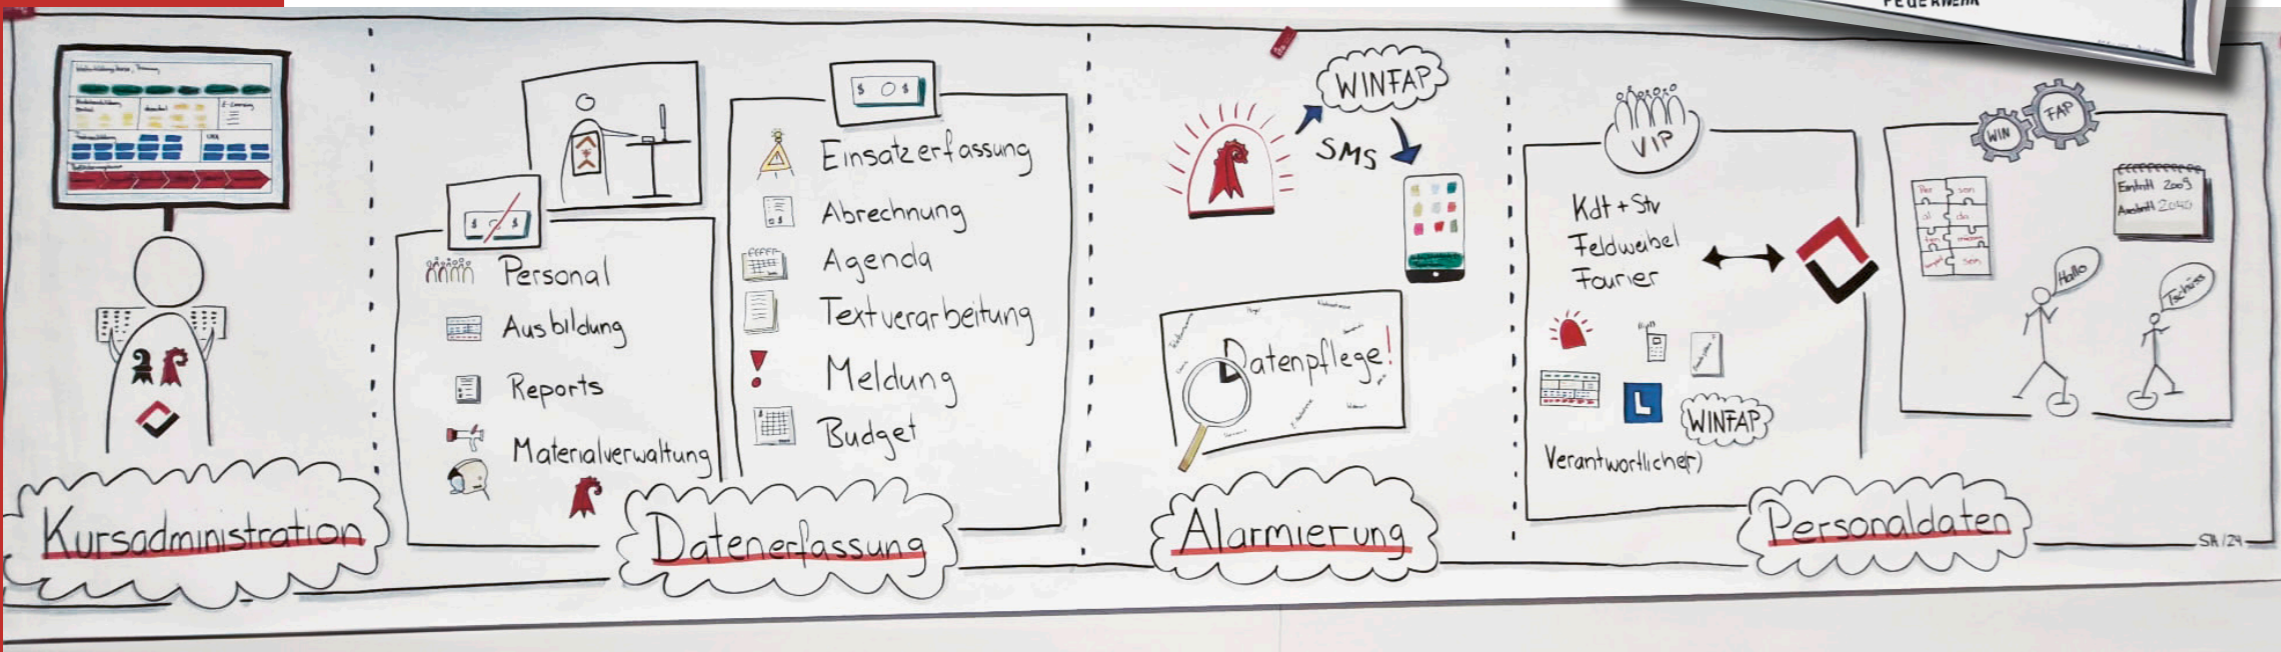 FEUERWEHR
Kursadministration
$ $
Personal
Ausbildung
Reports
Materialverwaltung
$ $
Einsatzerfassung
Abrechnung
Agenda
Textverarbeitung
Meldung
Budget
Datenerfassung
WINFAP
SMS
Datenpflege!
Alarmierung
VIP
Kdt + Stv
Feldweibel
Fourier
L
WINFAP
Verantwortliche(r)
WIN
FAP
Per son
al da
ten
sen
Eintritt 2009
Austritt 2040
Hallo
Tschüss
Personaldaten
SA/24